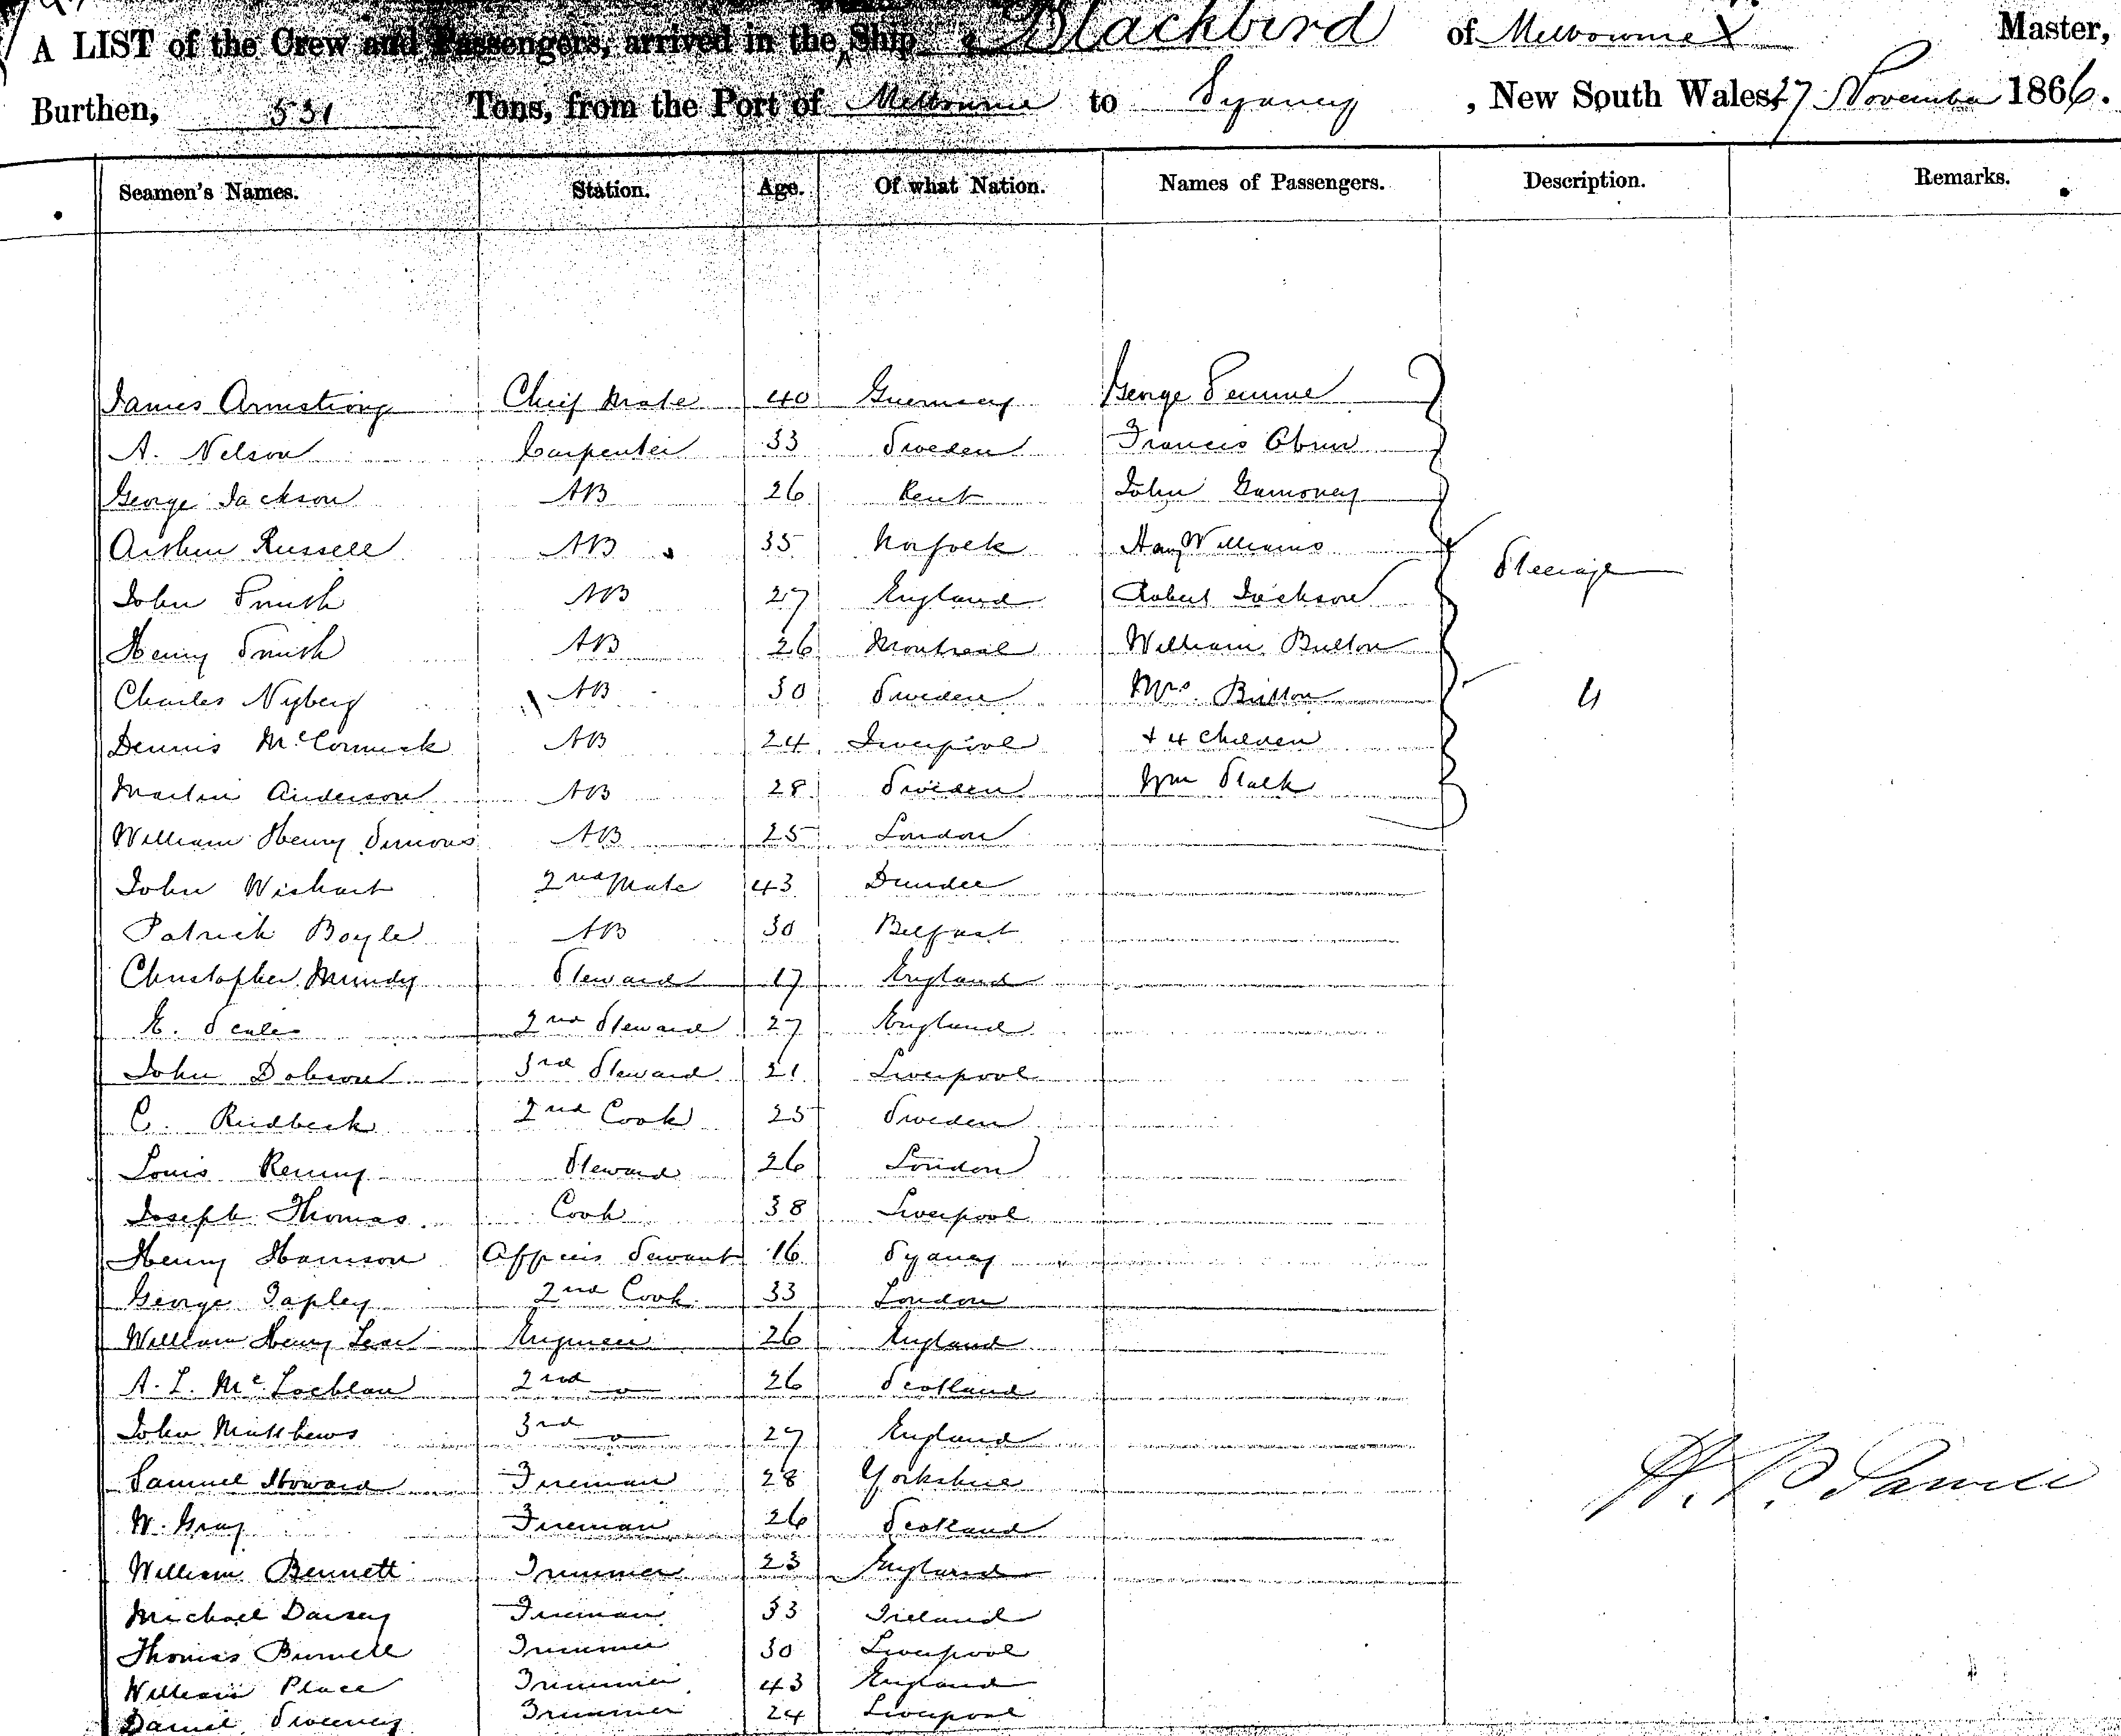 A LIST of the Crew and Passengers, arrived in the Ship Blackbird of Melbourne Master,
Burthen, 531 Tons, from the Port of Melbourne to Sydney, New South Wales, 27 November 1866.
Seamen's Names. Station. Age. Of what Nation. Names of Passengers. Description. Remarks.
James Armstrong Cheif Mate 40 Guernsey George
A. Nelson Carpenter 33 Sweden Francis
George Jackson AB 26 Kent John
Arthur Russell AB 35 Norfolk Hay Williams
Steerage
John Smith AB 27 England Robert Jackson
Henry Smith AB 26 Montreal William Bulton
Charles Nyberg AB 30 Sweden Mrs. Button 4
Dennis McCormick AB 24 Liverpool + 4 Children
Martin Anderson AB 28 Sweden Wm Stalk
William Henry Simons AB 25 London
John Wishart 2nd Mate 43 Dundee
Patrick Boyle AB 30 Belfast
Christopher Mundy Steward 17 England
E. Scales 2nd Steward 27 England
John Dobson 3rd Steward 21 Liverpool
C. Rudbeck 2nd Cook 25 Sweden
Louis Remy Steward 26 London
Joseph Thomas Cook 38 Liverpool
Henry Harrison Officers Servant 16 Sydney
George Tapley 2nd Cook 33 London
William Henry Lear Engineer 26 England
A. L. McLochlan 2nd 26 Scotland
John Matthews 3rd 27 England
Samuel Howard Fireman 28 Yorkshire
H. P.
W. Gray Fireman 26 Scotland
William Bennett Trimmer 23 England
Michael Darsey Fireman 33 Ireland
Thomas Burnell Trimmer 30 Liverpool
William Place Trimmer 43 England
Daniel Sweeney Trimmer 24 Liverpool